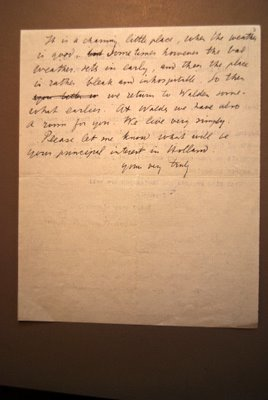 It is a charming little place, when the weather
is good. Sometimes however the bad
weather sets in early, and then the place
is rather bleak and inhospitable. So then
we return to Walden some-
what earlier. At Walden we have also
a room for you. We live very simply.
Please let me know what will be
your principal interest in Holland
your very truly